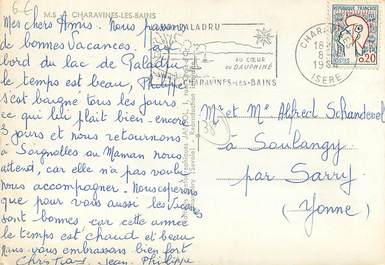 M.S. CHARAVINES-LES-BAINS
Mes chers Amis. Nous passons
de bonnes Vacances. Par
bord du lac de Paladru
le temps est beau, Philippe
s'est baigné tous les jours
ce qui lui plait bien - encore
3 jours et nous retournons
Soignolles où Maman nous
attend, car elle n'a pas voulu
nous accompagner. Nous espérons
que pour vous aussi les Vacances
sont bonnes, car cette année
le temps est chaud et beau
Nous vous embrassons bien fort
Christiane Jean Philippe
PALADRU
AU CŒUR
DU DAUPHINÉ
CHARAVINES-LES-BAINS
CHARAV
18
8
19
ISERE
REPUBLIQUE FRANÇAISE
POSTES
0,20
Mr et Me Alfred Schandevel
à Soulangy
par Sarry
(Yonne)